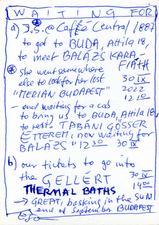 WAITING FOR
a) J.S. @ Caffé Central / 1887
to get to BUDA, Attila 18,
to meet BALÁZS KARA-
FIÁTH
* She went somewhere 30 IX
else to look for lost 2022
"MERIDIAN BUDAPEST" 12 10
- and waiting for a cab
to bring us to BUDA, Attila 18
to restr. TABÁNI GÖSSER
ÉTTEREM; now waiting for
BALÁZS 12 30 30 IX
b) our tickets to go into
the GELLERT 30 IX
THERMAL BATHS 14 00
→ GREAT, basking in the SUN
end of September BUDAPEST